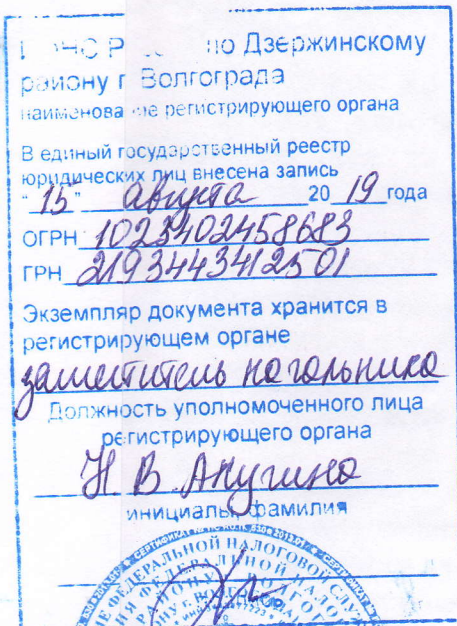 по Дзержинскому
району г. Волгограда
наименование регистрирующего органа
В единый государственный реестр
юридических лиц внесена запись
"15" августа 2019 года
ОГРН 1023402458683
ГРН 2193443412501
Экземпляр документа хранится в
регистрирующем органе
заместитель начальника
Должность уполномоченного лица
регистрирующего органа
Н В
инициалы, фамилия
ФЕДЕРАЛЬНОЙ НАЛОГОВОЙ